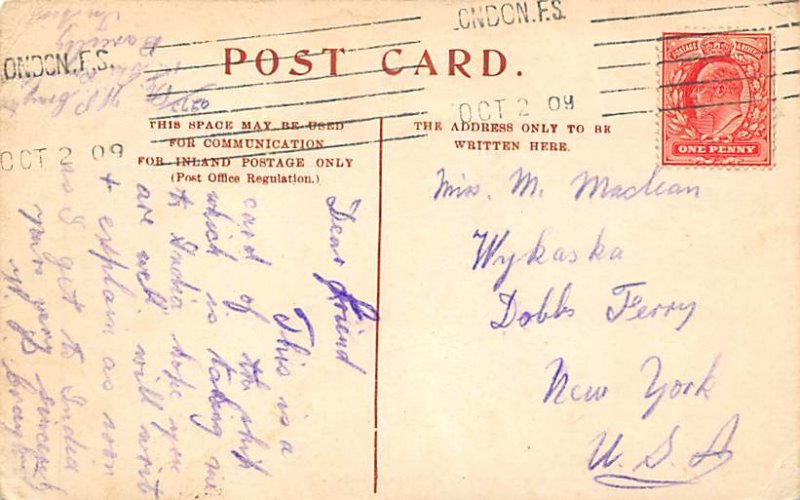 LONDON.F.S.
OCT 2 09
ONDON.F.S.
OCT 2 09
POST CARD.
POSTAGE & REVENUE
ONE PENNY
THIS SPACE MAY BE USED
FOR COMMUNICATION
FOR INLAND POSTAGE ONLY
(Post Office Regulation.)
THE ADDRESS ONLY TO BE
WRITTEN HERE.
Miss. M. Maclean
Wykaska
Dobbs Ferry
New York
U.S.A
Dear Friend
This is a
card of the ship
which is taking me
to India hope you
are well. will write
+ explain as soon
as I get to India
yours very sincerely